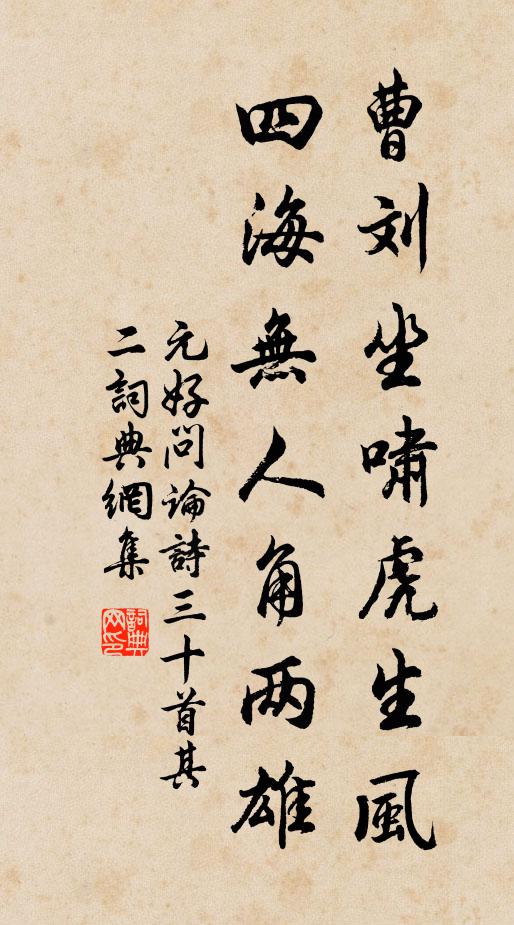 曹刘坐啸虎生風
四海無人角两雄
元好问論詩三十首其
二詞典網集
詞典
网印